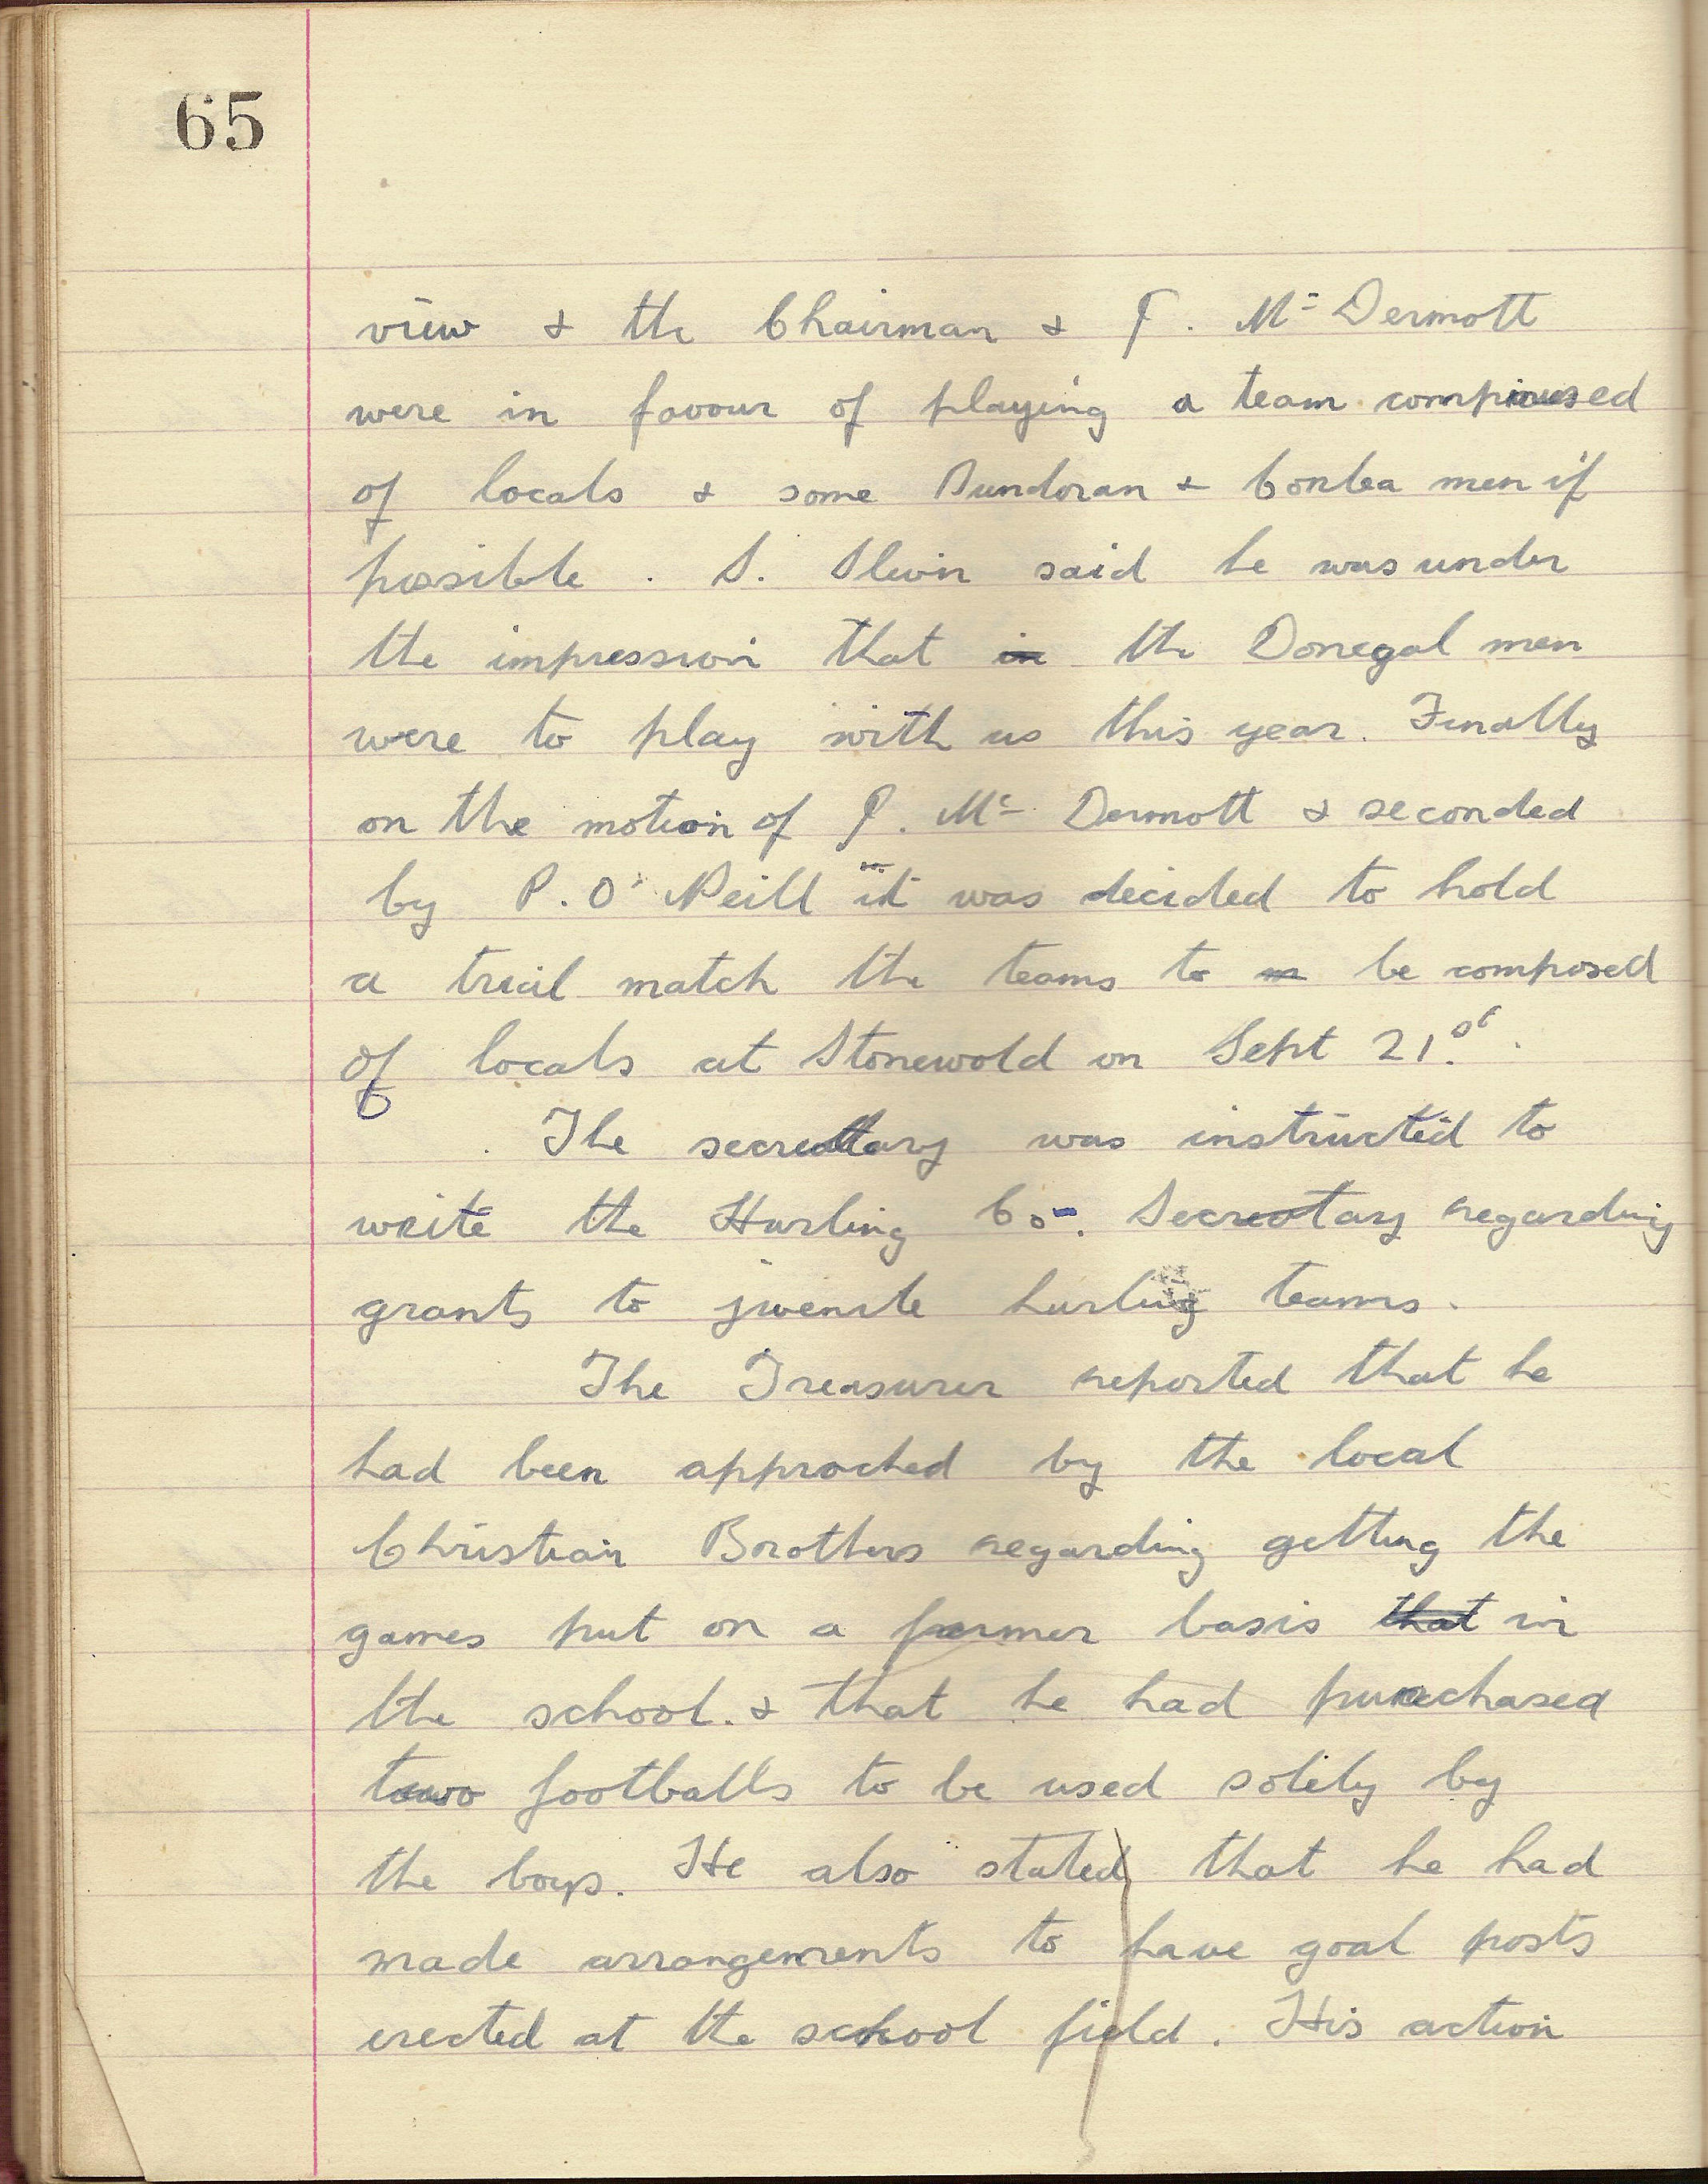 65
view & the Chairman & P. Mc Dermott
were in favour of playing a team comprised
of locals & some Bundoran & Conlea men if
possible. S. Slevin said he was under
the impression that in the Donegal men
were to play with us this year. Finally
on the motion of P. Mc Dermott & seconded
by P. O' Neill it was decided to hold
a trial match the teams to be composed
of locals at Stonewold on Sept 21st.
The secretary was instructed to
write the Hurling Co. Secretary regarding
grants to juvenile hurling teams.
The Treasurer reported that he
had been approched by the local
Christian Brothers regarding getting the
games put on a firmer basis that in
the school. & that he had purchased
two footballs to be used solely by
the boys. He also stated that he had
made arrangements to have goal posts
erected at the school field. His action